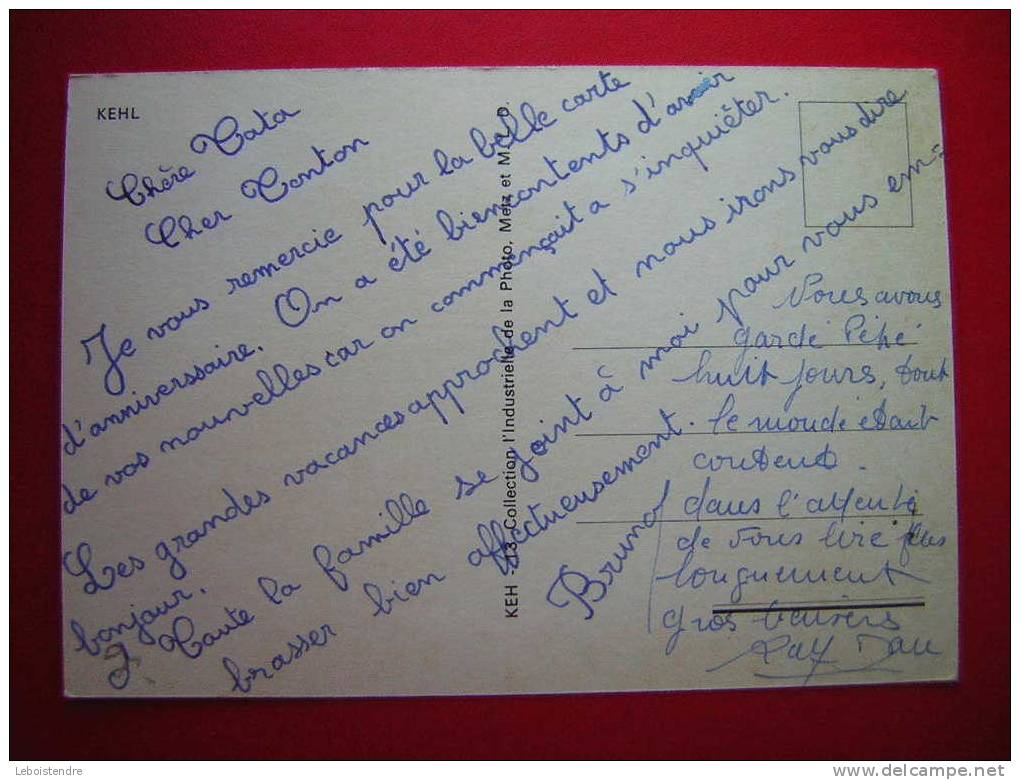 KEHL
Chère Tata
Cher Tonton
Je vous remercie pour la belle carte
d'anniverssaire. On a été bien contents d'avoir
de vos nouvelles car on commençait a s'inquiéter.
Les grandes vacances approchent et nous irons vous dire
bonjour.
Toute la famille se joint à moi pour vous em=
brasser bien affectueusement.
Bruno
KEH - 13 Collection l'Industrielle de la Photo, Metz et M. L. D.
Nous avons
gardé Pépé
huit jours, tout
le monde était
content.
dans l'attente
de vous lire plus
longuement
gros baisers
Ray
Leboistendre
www.delcampe.net